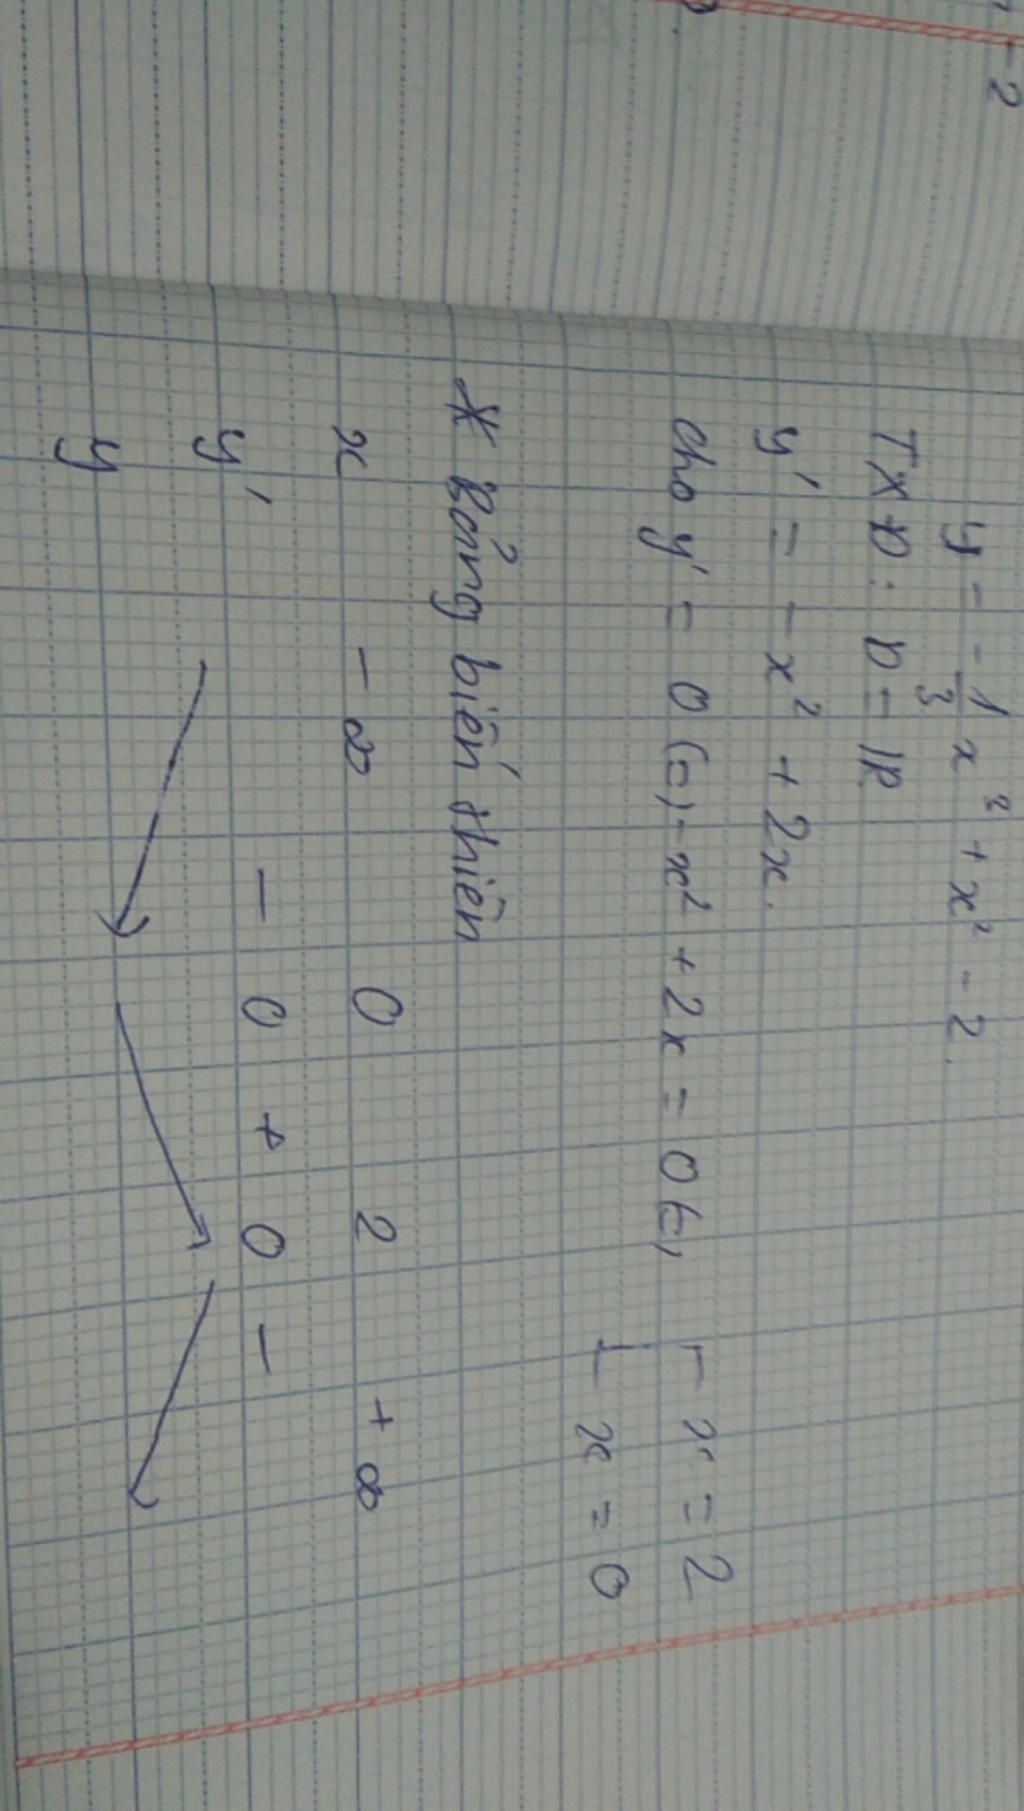 - 2
y = - 1/3 x² + x² - 2.
TXĐ: D = ℝ
y' = - x² + 2x.
cho y' = 0 (=) - x² + 2x = 0 (=) [ x = 2
[ x = 0
* Bảng biến thiên
x -∞ 0 2 +∞
y' - 0 + 0 -
y ↘ ↗ ↘